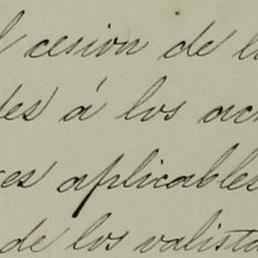 l cesion de l
des á los ac
es aplicables
de los valista